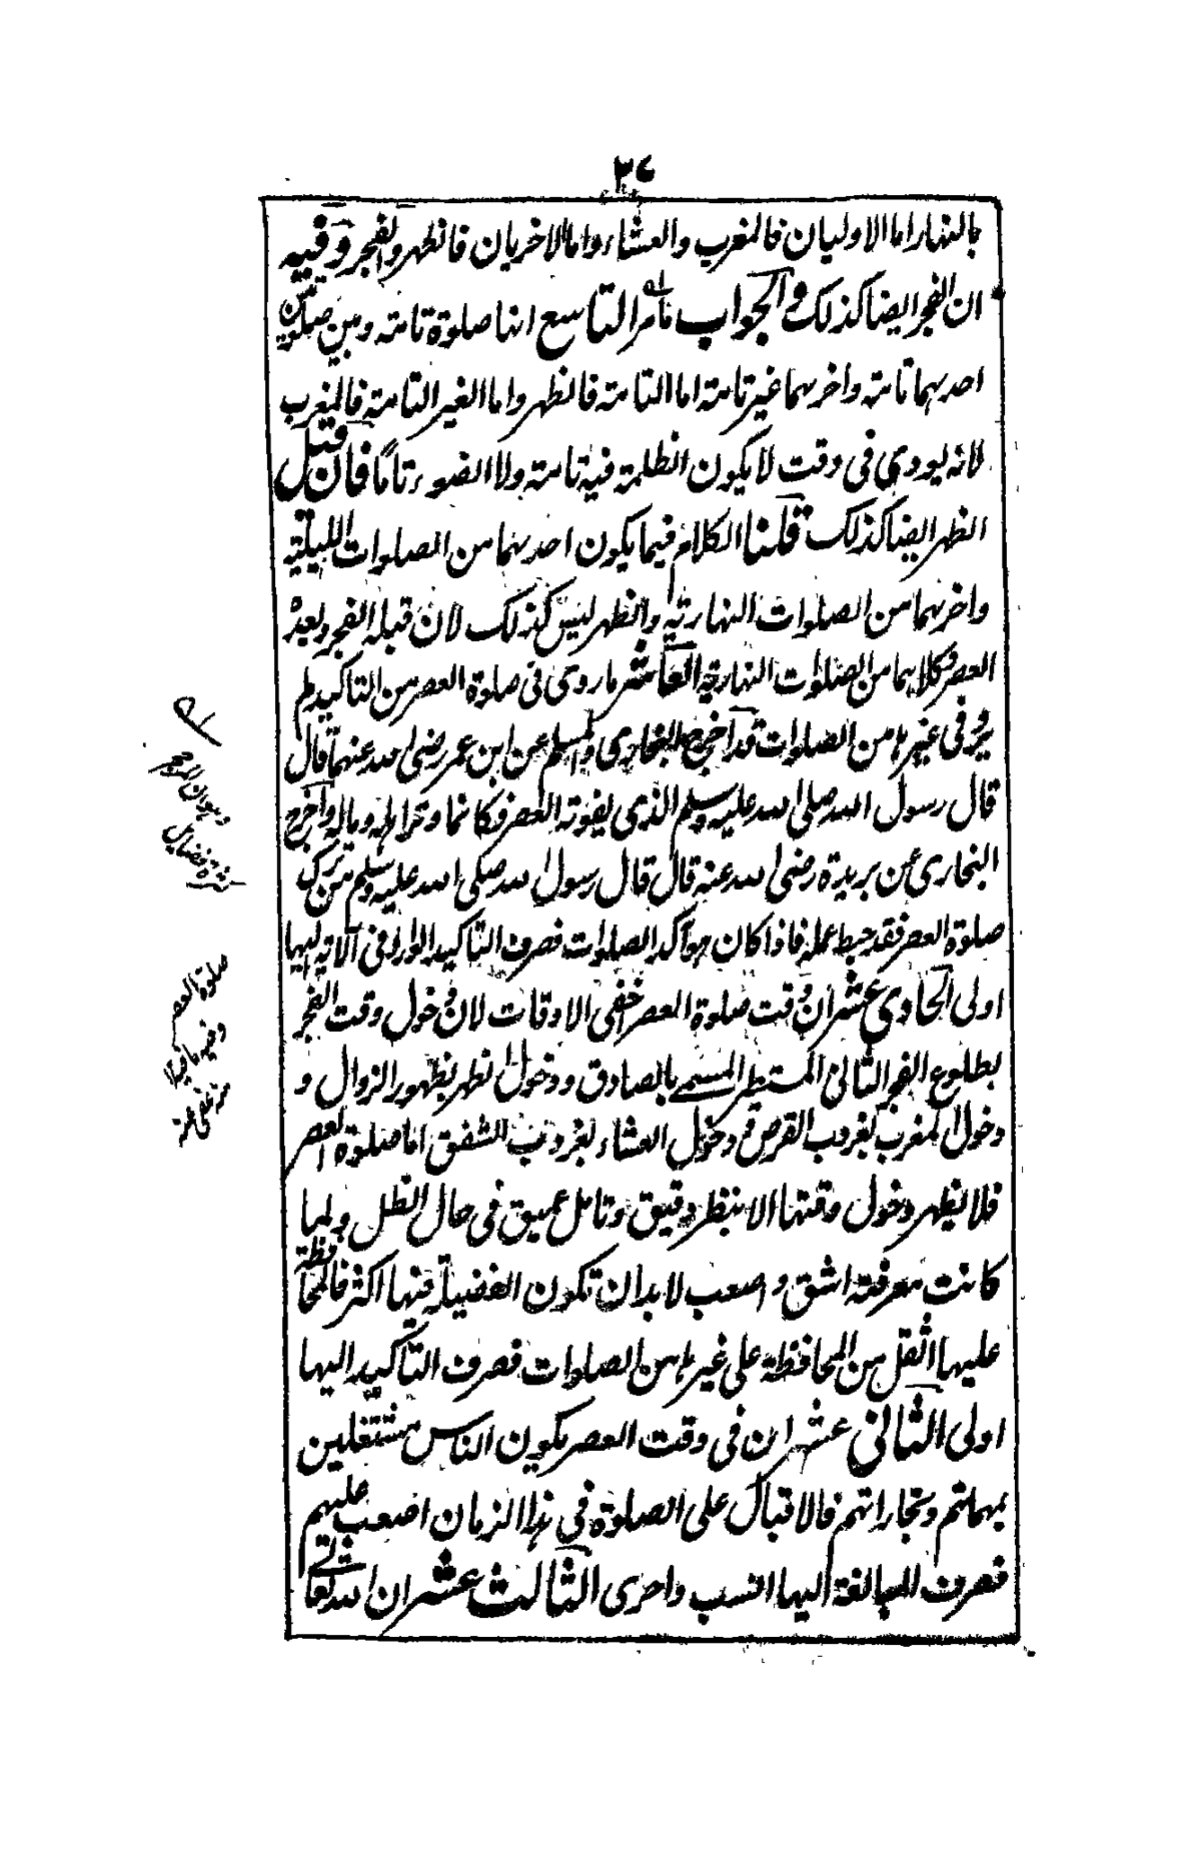 ٣٧
بالنهار اما الاوليان فالمغرب والعشاء واما الاخريان فالظهر والفجر وفيه
ان الفجر ايضا كذلك والجواب ما مر التاسع انها صلوة تامته وبين صلوتين
احدىهما تامته واخرىهما غير تامته اما التامته فالظهر واما الغير التامته فالمغرب
لانه يودى فى وقت لا يكون الظلمة فيه تامته ولا الضوء تامًا فان قيل
الظهر ايضا كذلك قلنا الكلام فيما يكون احدىهما من الصلوات الليلية
واخرىهما من الصلوات النهارية والظهر ليس كذلك لان قبله الفجر وبعده
العصر وكلاهما من الصلوات النهارية العاشر ما روى فى صلوة العصر من التاكيد لم
يجر فى غيرها من الصلوات قد اخرج البخارى والمسلم عن ابن عمر رضى الله عنهما قال
قال رسول الله صلى الله عليه وسلم الذى يفوته العصر فكانما وتر اهله وماله واخرج
البخارى عن بريدة رضى الله عنه قال قال رسول الله صلى الله عليه وسلم من ترك
صلوة العصر فقد حبط عمله فاذا كان هو آكد الصلوات فصرف التاكيد الوارد فى الآية اليها
اولى الحادى عشر ان وقت صلوة العصر اخفى الاوقات لان دخول وقت الفجر
بطلوع الفجر الثانى المستطير المسمى بالصادق ودخول الظهر بظهور الزوال و
دخول المغرب بغروب القرص ودخول العشاء بغروب الشفق اما صلوة العصر
فلا يظهر دخول وقتها الا بنظر دقيق وتامل عميق فى حال الظل ولما
كانت معرفته اشق واصعب لا بد ان تكون الفضيلة فيها اكثر فالمحافظة
عليها اثقل من المحافظة على غيرها من الصلوات فصرف التاكيد اليها
اولى الثانى عشر ان فى وقت العصر يكون الناس مشتغلين
بمهماتهم وتجاراتهم فالاقبال على الصلوة فى هذا الزمان اصعب عليهم
فصرف المبالغة اليها انسب واحرى الثالث عشر ان الله تعالى
وهو ان
كثرة فضائل
صلوة العصر
وفيه ما فيه
منه عفى عنه